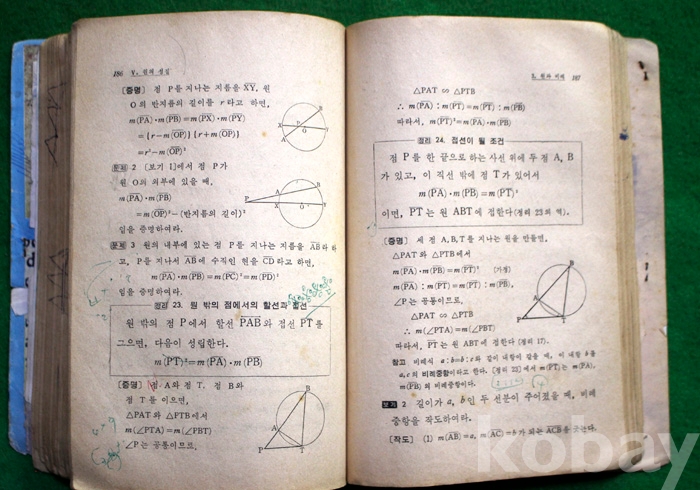 186 Ⅴ. 원의 성질
[증명] 점 P를 지나는 지름을 XY, 원
O의 반지름의 길이를 r라고 하면,
m(PA)·m(PB)=m(PX)·m(PY)
={r−m(OP)}{r+m(OP)}
=r²−m(OP)²
문제 2 [보기 1]에서 점 P가
원 O의 외부에 있을 때,
m(PA)·m(PB)
=m(OP)²−(반지름의 길이)²
임을 증명하여라.
문제 3 원의 내부에 있는 점 P를 지나는 지름을 AB라 하
고, P를 지나서 AB에 수직인 현을 CD라고 하면,
m(PA)·m(PB)=m(PC)²=m(PD)²
임을 증명하여라.
정리 23. 원 밖의 점에서의 할선과 접선
원 밖의 점 P에서 할선 PAB와 접선 PT를
그으면, 다음이 성립한다.
m(PT)²=m(PA)·m(PB)
[증명] 점 A와 점 T, 점 B와
점 T를 이으면,
△PAT와 △PTB에서
m(∠PTA)=m(∠PBT)
∠P는 공통이므로,
2. 원과 비례 187
△PAT ∽ △PTB
∴ m(PA) : m(PT)=m(PT) : m(PB)
따라서, m(PT)²=m(PA)·m(PB)
정리 24. 접선이 될 조건
점 P를 한 끝으로 하는 사선 위에 두 점 A, B
가 있고, 이 직선 밖에 점 T가 있어서
m(PA)·m(PB)=m(PT)²
이면, PT는 원 ABT에 접한다(정리 23의 역).
[증명] 세 점 A, B, T를 지나는 원을 만들면,
△PAT와 △PTB에서
m(PA)·m(PB)=m(PT)² (가정)
m(PA) : m(PT)=m(PT) : m(PB),
∠P는 공통이므로,
△PAT ∽ △PTB
∴ m(∠PTA)=m(∠PBT)
따라서, PT는 원 ABT에 접한다 (정리 17).
참고 비례식 a:b=b:c와 같이 내항이 같을 때, 이 내항 b를
a, c의 비례중항이라고 한다. (정리 23)에서 m(PT)는 m(PA),
m(PB)의 비례중항이다.
보기 2 길이가 a, b인 두 선분이 주어졌을 때, 비례
중항을 작도하여라.
[작도] (1) m(AB)=a, m(AC)=b가 되는 ACB를 긋는다.
kobay